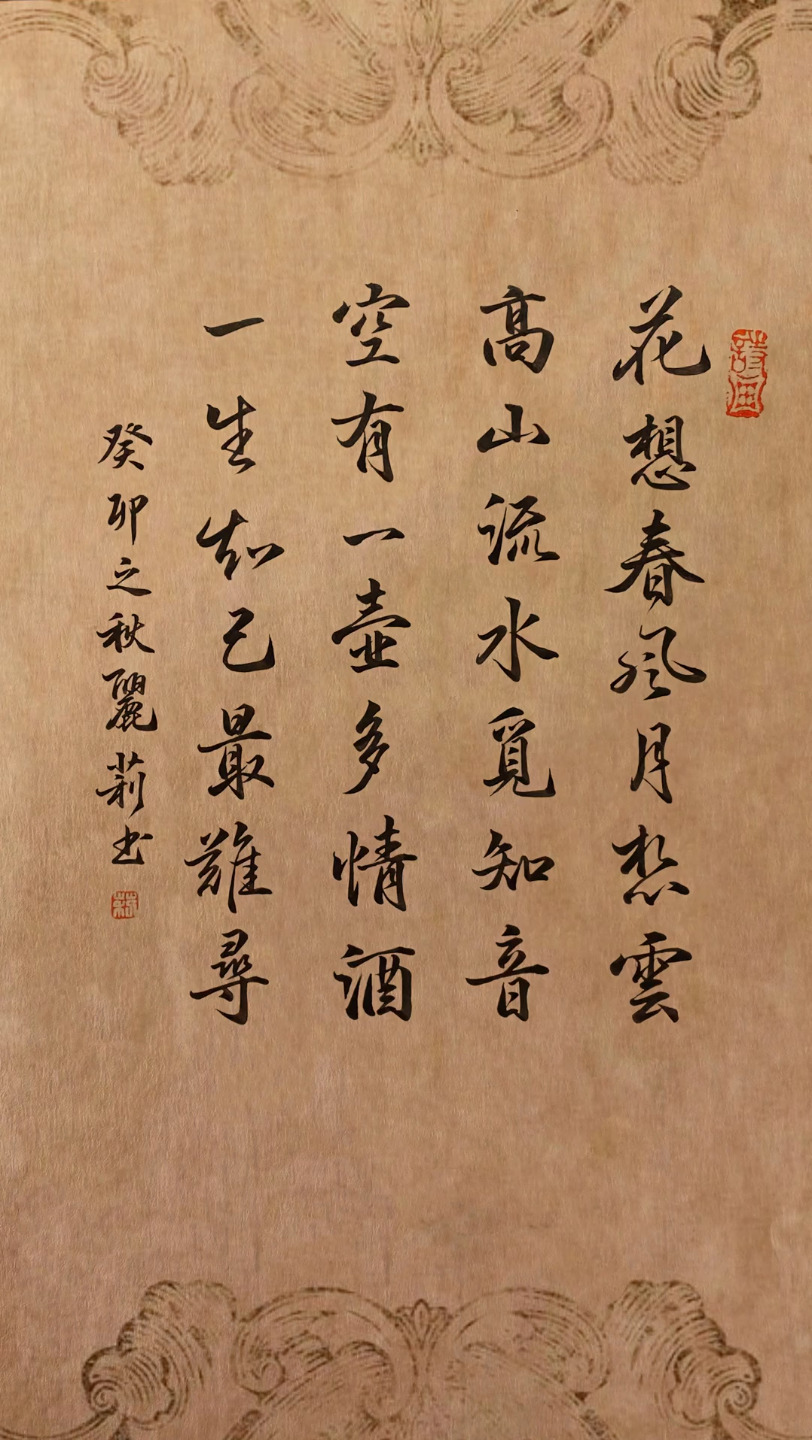 花想春風月想雲
高山流水覓知音
空有一壺多情酒
一生知己最難尋
癸卯之秋麗莉書